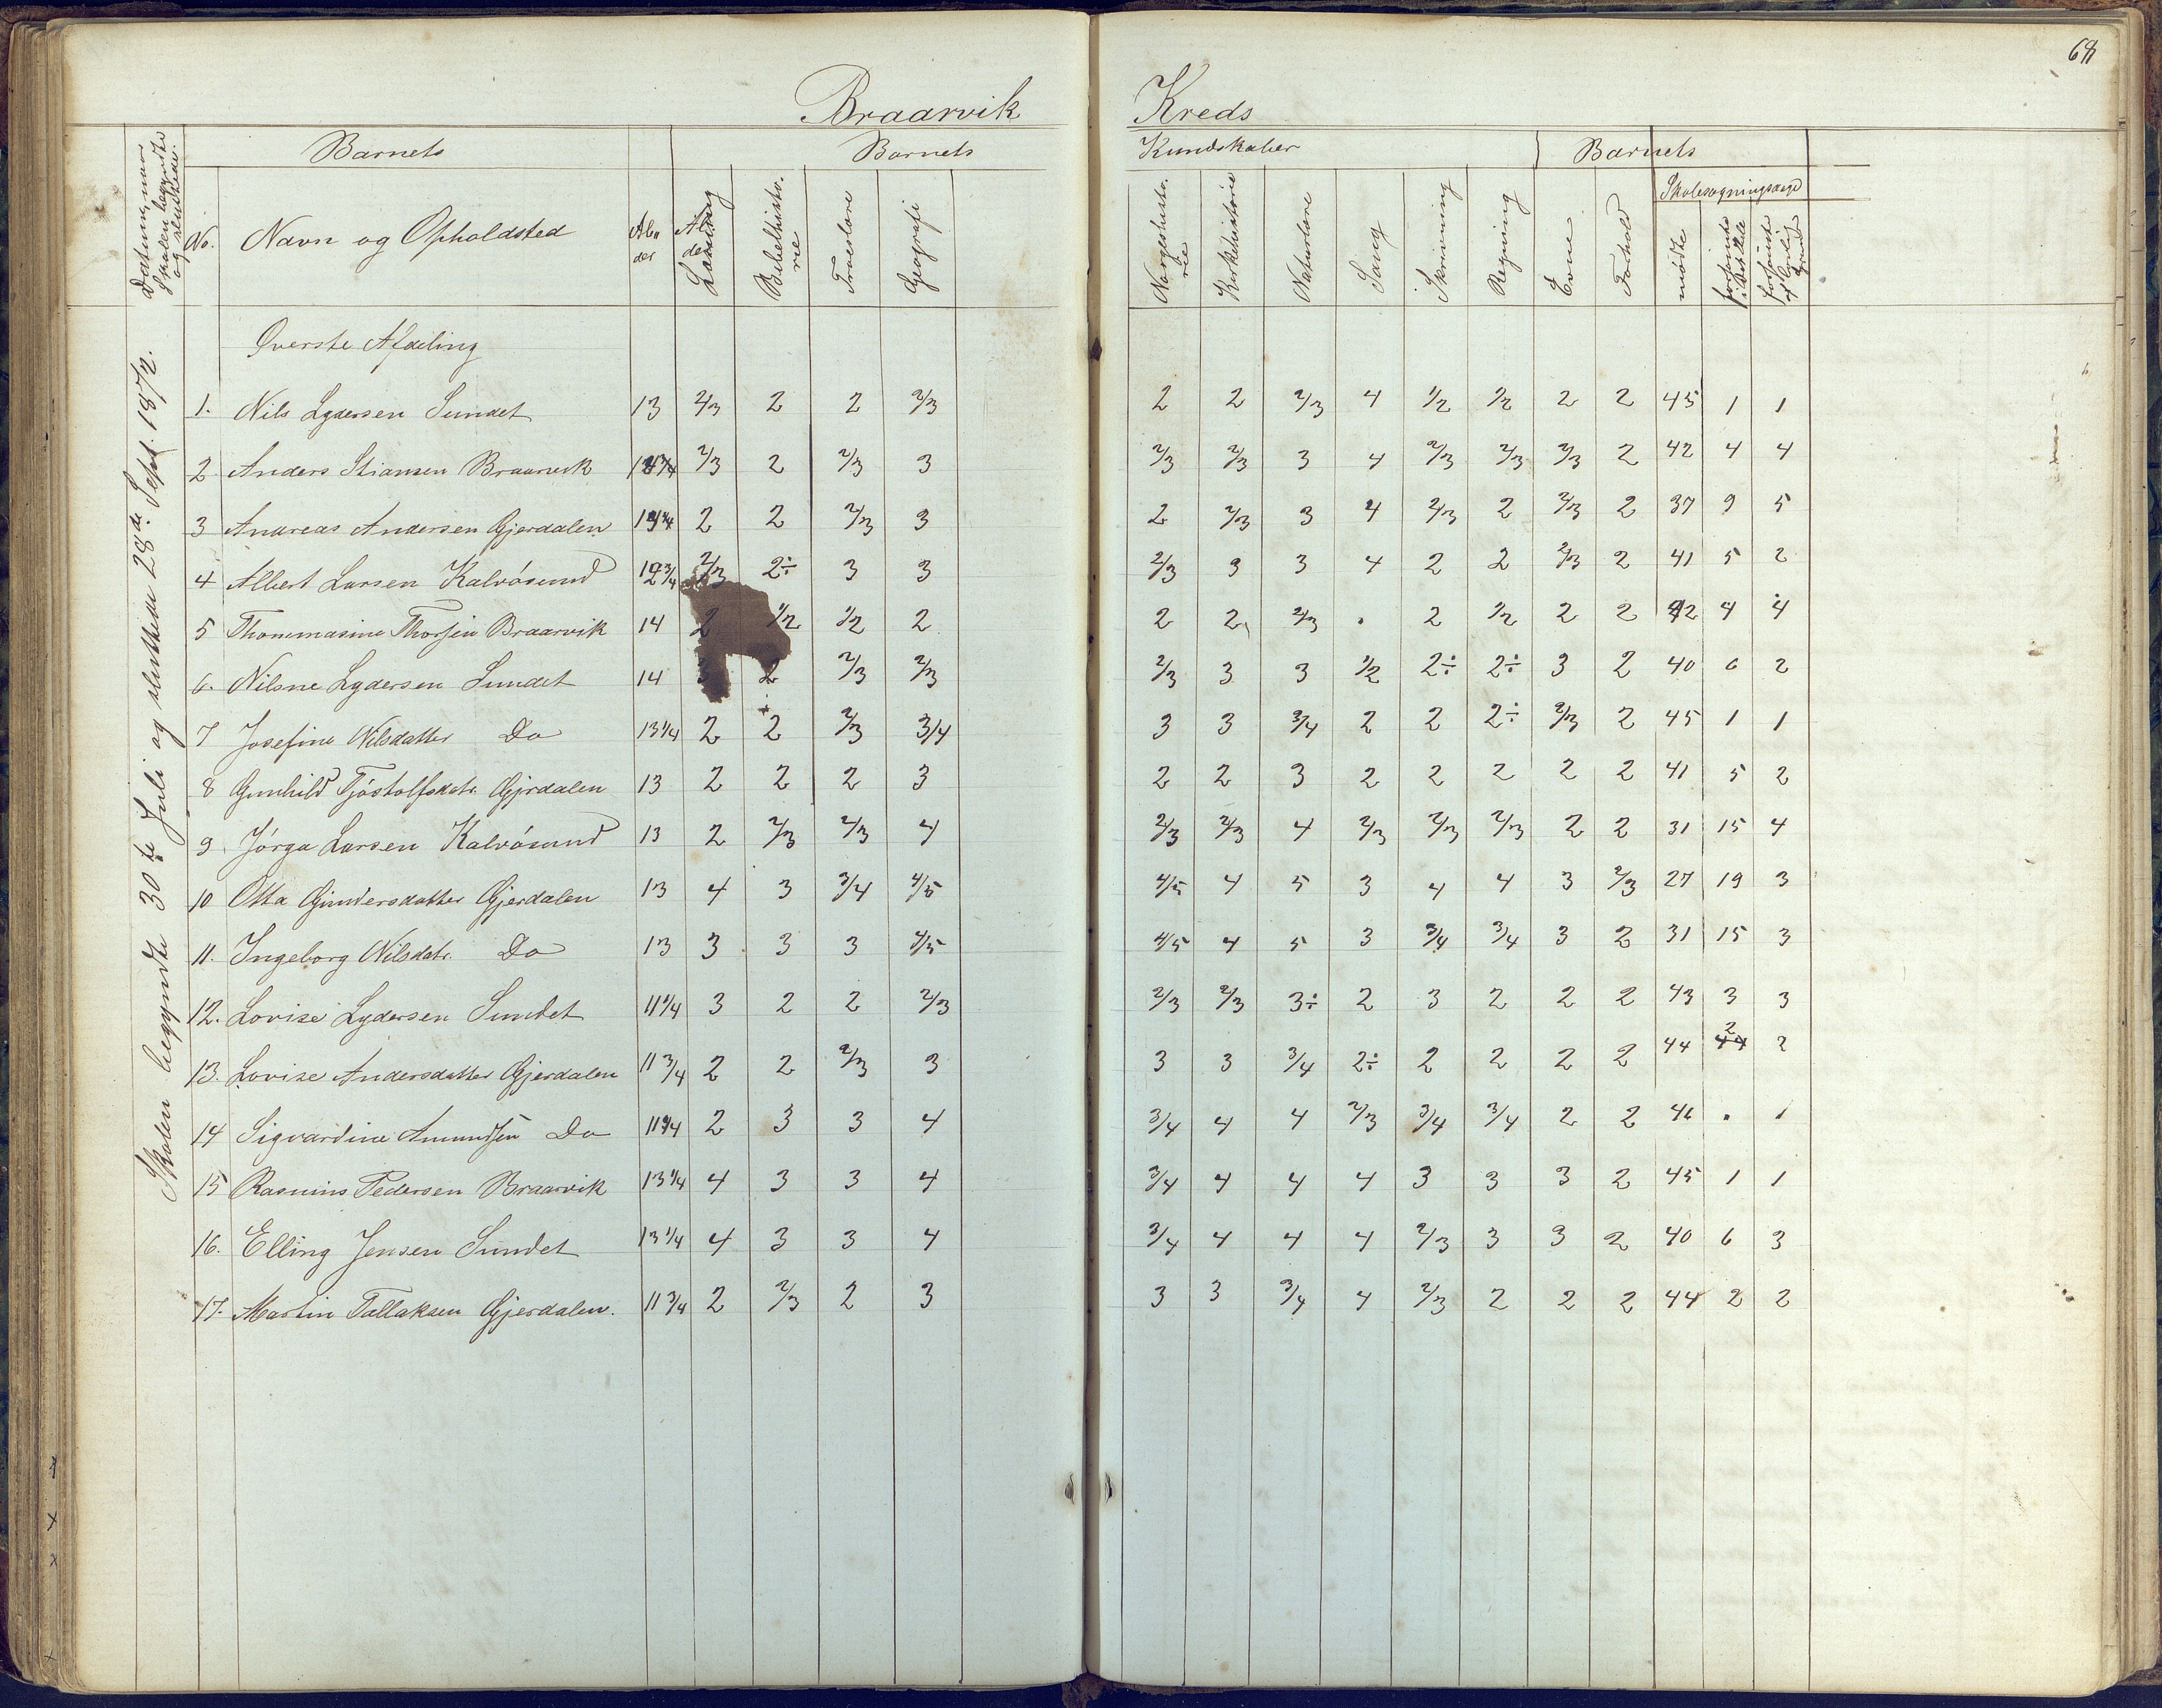 68
Braarvik Kreds
Datum, naar Skolen begyndte og sluttede.
Barnets
Barnets Kundskaber
Barnets
No.
Navn og Opholdsted
Alder
Læsning
Bibelhistorie
Troeslære
Geografi
Norgeshistorie
Kirkehistorie
Naturlære
Sang
Skrivning
Regning
Evne
Forhold
Skolesøgningsdage
mødte
forsømte i det Hele
forsømte af lovlig Grund
Skolen begyndte 30te Juli og sluttede 28de Sept. 1872.
Øverste Afdeling
1. Nils Lydersen Sundet 13 2/3 2 2 2/3 2 2 2/3 4 1/2 1/2 2 2 45 1 1
2 Anders Stiansen Braarvik 2/3 2 2/3 3 2/3 2/3 3 4 2/3 2/3 2/3 2 42 4 4
3 Andreas Andersen Gjerdalen 2 2 2/3 3 2 2/3 3 4 2/3 2 2/3 2 37 9 5
4 Albert Larsen Kalvøsund 12 3/4 2/3 2÷ 3 3 2/3 3 3 4 2 2 2/3 2 41 5 2
5 Thommasine Thorsen Braarvik 14 2 1/2 1/2 2 2 2 2/3 . 2 1/2 2 2 42 4 4
6. Nilsne Lydersen Sundet 14 3 2 2/3 2/3 2/3 3 3 1/2 2÷ 2÷ 3 2 40 6 2
7 Josefine Nilsdatter Do 13 1/4 2 2 2/3 3/4 3 3 3/4 2 2 2÷ 2/3 2 45 1 1
8 Gunhild Tjøstolfsdatr. Gjrdalen 13 2 2 2 3 2 2 3 2 2 2 2 2 41 5 2
9 Jørga Larsen Kalvøsund 13 2 2/3 2/3 4 2/3 2/3 4 2/3 2/3 2/3 2 2 31 15 4
10 Otta Gundersdatter Gjerdalen 13 4 3 3/4 4/5 4/5 4 5 3 4 4 3 2/3 27 19 3
11. Ingeborg Nilsdatr. Do 13 3 3 3 4/5 4/5 4 5 3 3/4 3/4 3 2 31 15 3
12. Lovise Lydersen Sundet 11 1/4 3 2 2 2/3 2/3 2/3 3÷ 2 3 2 2 2 43 3 3
13. Lovise Andersdatter Gjerdalen 11 3/4 2 2 2/3 3 3 3 3/4 2÷ 2 2 2 2 44 2 2
14 Sigvardine Amundsen Do 11 3/4 2 3 3 4 3/4 4 4 2/3 3/4 3/4 2 2 46 . 1
15 Rasmins Pedersen Braarvik 13 1/4 4 3 3 4 3/4 4 4 4 3 3 3 2 45 1 1
16. Elling Jensen Sundet 13 1/4 4 3 3 4 3/4 4 4 4 2/3 3 3 2 40 6 3
17. Martin Tallaksen Gjerdalen. 11 3/4 2 2/3 2 3 3 3 3/4 4 2/3 2 2 2 44 2 2